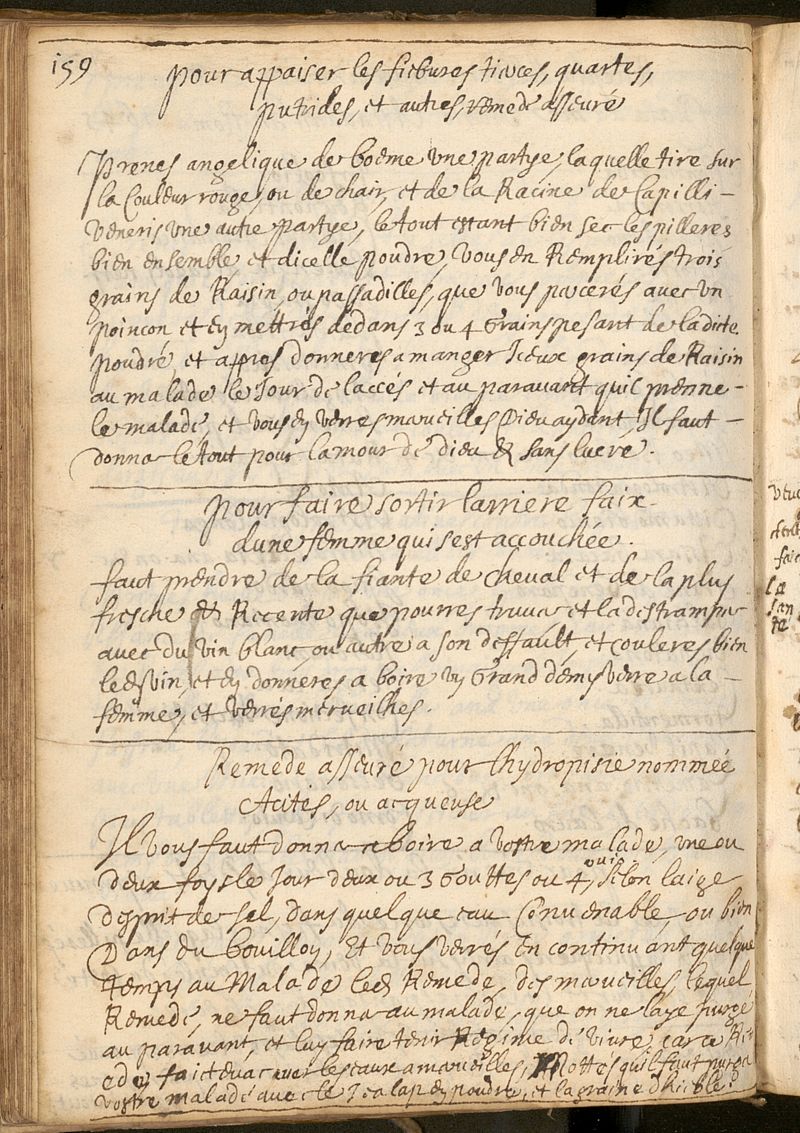 159
pour appaiser les fiebures tierces, quartes,
putrides, et autres, remede asseuré
Prenes angelique de boeme vne partye, laquelle tire sur
la Couleur rouge, ou de chair, et de la Racine de Capilli-
veneris vne autre partye, le tout estant bien sec les pilleres
bien ensemble, et dicelle poudre, vous en Remplirés trois
grains de Raisin, ou passadilles, que vous percerés avec vn
poincon et en mettrés dedans 3 ou 4 Grains pesant de ladicte
poudre, et apres donneres a manger Iceux grains de Raisin
au malade le Jour de laccés et au parauant quil prenne-
le malade, et vous en verres merueilles Dieu aydant, Il faut-
donner le tout pour lamour de dieu & sans lucre.
pour faire sortir larriere faix
dune femme qui sest accouchée.
faut prendre de la fiante de cheval et de la plus
fresche & Recente que pourres truuer et la destramper
avec du vin blanc ou autre a son deffault, et couleres bien
led vin, et en donneres a boire vn Grand demy verre a la-
femme, et verrés merueilhes.
Remede asseuré pour lhydropisie nommée
Acites, ou acqueuse
Il vous faut donner a boire a vostre malade, vne ou
deux foys le Jour deux ou 3 Gouttes ou 4, Selon laige
desprit de sel, dans quelque eau Conuenable, ou bien
Dans du bouillon, Et vous verrés en continuant quelque
temps au Malade led Remede, des merueilles, lequel
Remede, ne faut donner au malade, que on ne laye purgé
au parauant, et luy faire tenir Regime de viure, car ce
faict evacuer les eaux a merueilles, Nottés quil faut purger
vostre malade avec le Jealap en poudre, et la graine dhieble.